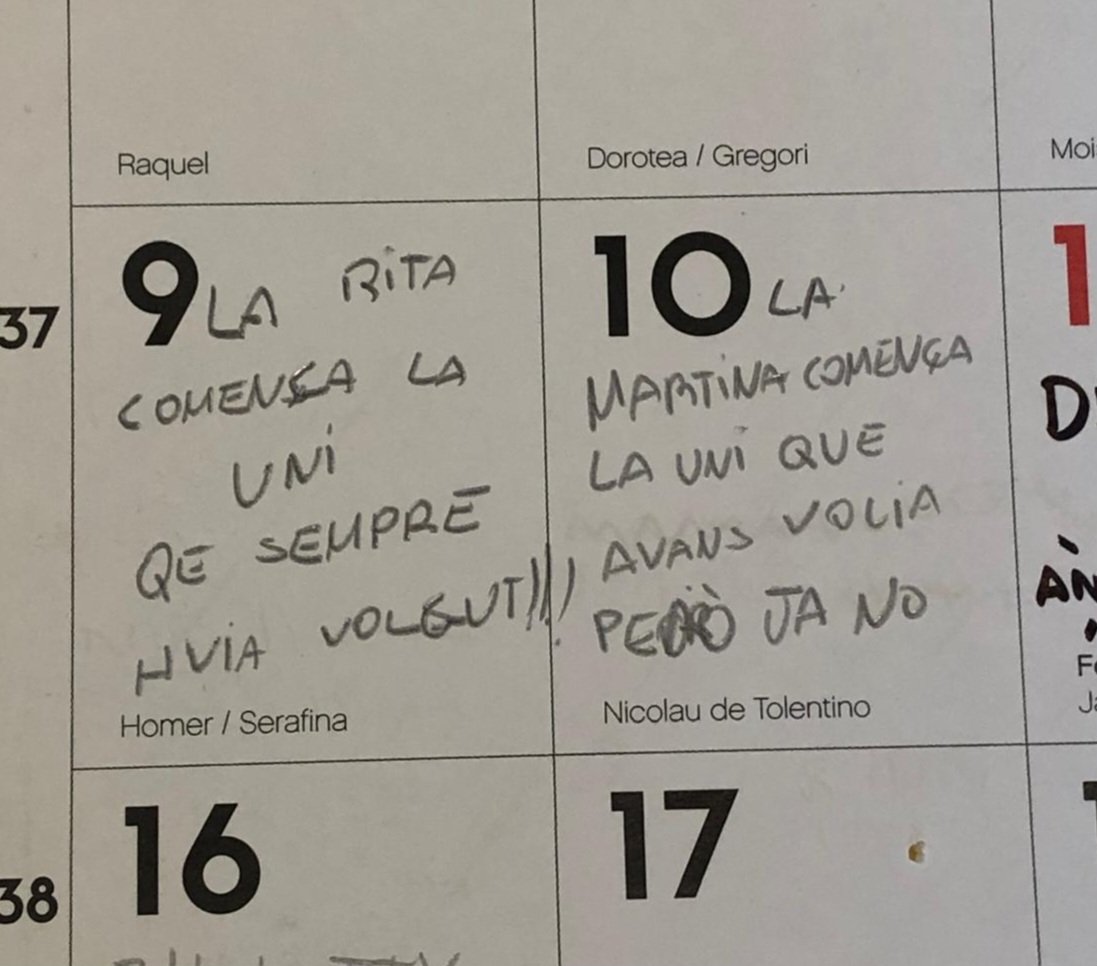 Raquel
Dorotea / Gregori
Moi
37
9 LA RiTA
COMENSA LA
UNi
QE SEMPRE
HVIA VOLGUT!!!
Homer / Serafina
10 LA
MARTiNA COMENÇA
LA UNi QUE
AVANS VOLiA
PERÒ JA NO
Nicolau de Tolentino
1
D
ÀN
Fe
Ja
38
16
17
1